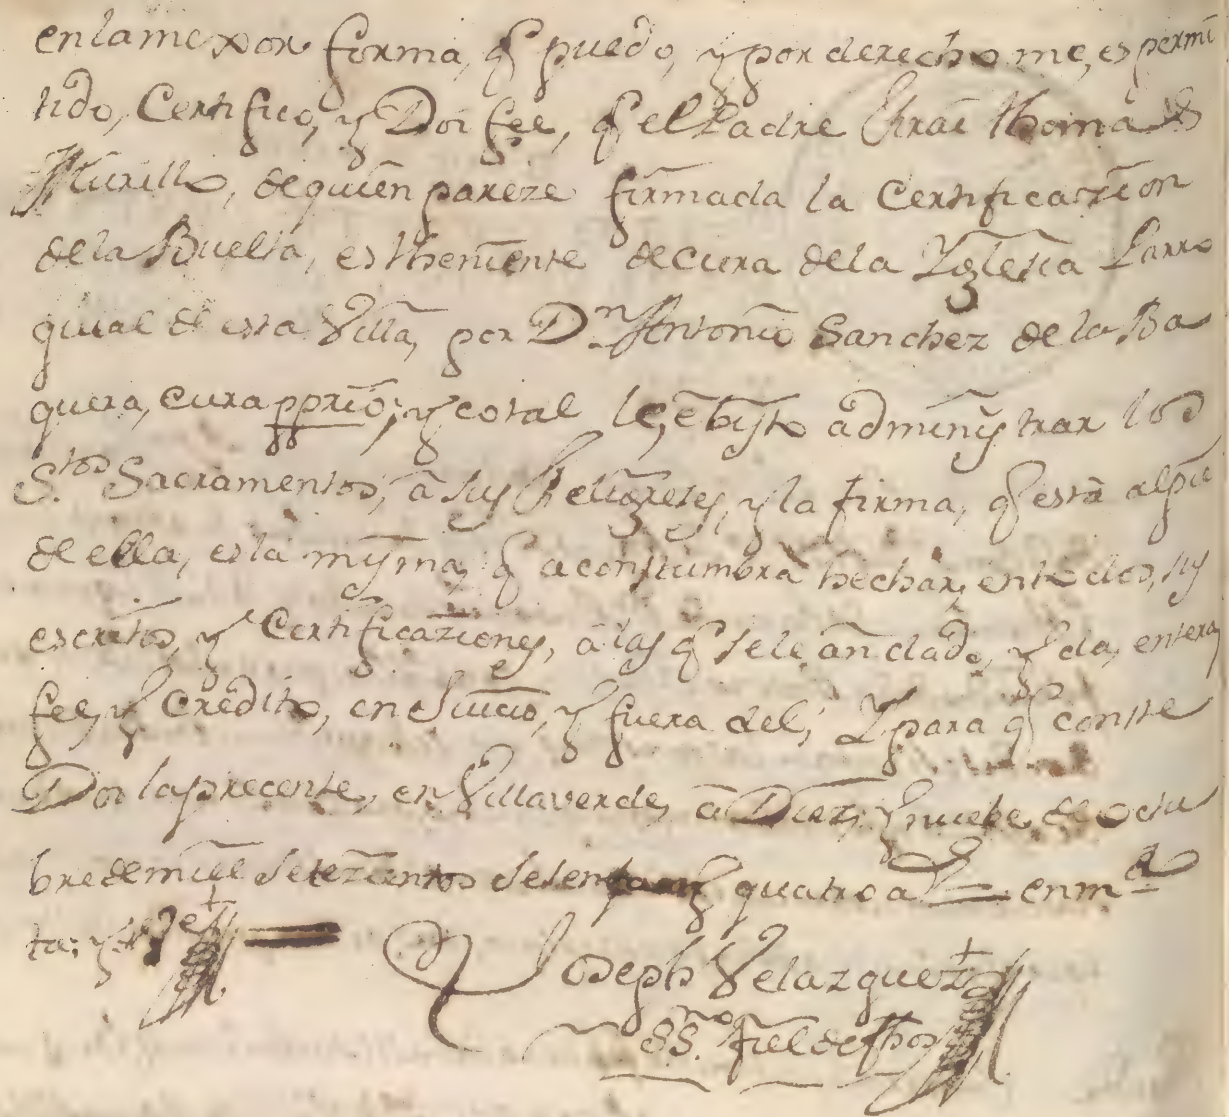 en la mexor forma, q̃ puedo, y por derecho me, es permi
tido, Certifico, y Doi fee, q̃ el Padre Frai Thomas
Murillo, de quien pareze firmada la Certificazion
de la Buelta, es theniente de cura de la Yglesia Parro
quial de esta Villa, por Dn. Antonio Sanchez de la Ba
quera, cura pprio; y cotal le, e bisto administrar los
Stos. Sacramentos, a sus Feligreses, y la firma, q̃ esta al pie
de ella, es la mysma, q̃ acostumbra hechar, en todos, sus
escritos, y Certificaziones, a las q̃ se le an dado, y da, entera,
fee, y Credito, en Juicio, y fuera del; Y para q̃ conste
Doi la precente, en Villaverde, a Diez, y nuebe, de octu
bre de mill setezientos setenta y quatro a = enmda
ta; y =
Joseph Velazquez
SSno. fiel de fhos